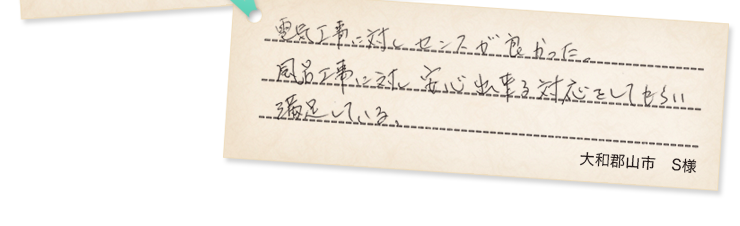 電気工事に対しセンスが良かった。
風呂工事に対し安心出来る対応をしてもらい
満足している。
大和郡山市 S様